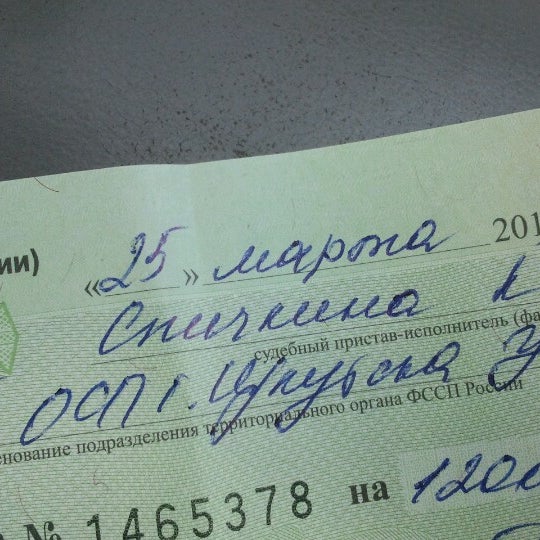 ии)
«25» марта 201
Спичкина К
судебный пристав-исполнитель (фа
ОСП г. Щ
енование подразделения территориального органа ФССП России
№ 1465378 на 1200